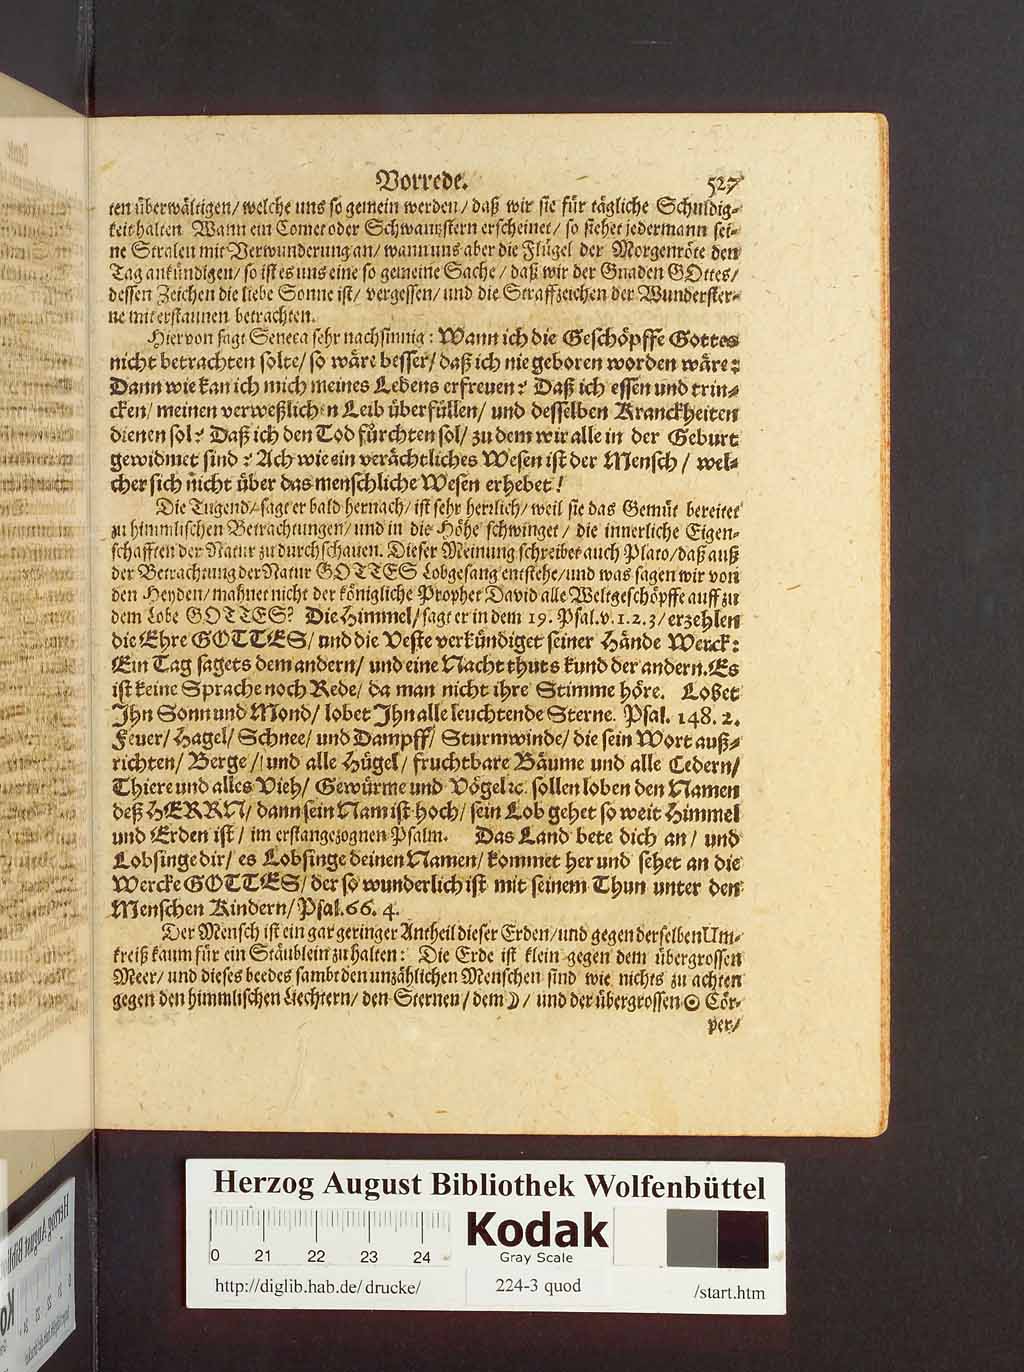 Vorrede. 527
ten überwältigen/ welche uns so gemein werden/ daß wir sie für tägliche Schuldig-
keit halten. Wann ein Comet oder Schwantzstern erscheinet/ so siehet jedermann sei-
ne Stralen mit Verwunderung an/ wann uns aber die Flügel der Morgenröte den
Tag ankündigen/ so ist es uns eine so gemeine Sache/ daß wir der Gnaden GOttes/
dessen Zeichen die liebe Sonne ist/ vergessen/ und die Straffzeichen der Wunderster-
ne mit erstaunen betrachten.
Hiervon sagt Seneca sehr nachsinnig: Wann ich die Geschöpffe Gottes
nicht betrachten solte/ so wäre besser/ daß ich nie geboren worden wäre:
Dann wie kan ich mich meines Lebens erfreuen? Daß ich essen und trin-
cken/ meinen verweßlichen Leib überfüllen/ und desselben Kranckheiten
dienen sol? Daß ich den Tod fürchten sol/ zu dem wir alle in der Geburt
gewidmet sind? Ach wie ein verächtliches Wesen ist der Mensch/ wel-
cher sich nicht über das menschliche Wesen erhebet!
Die Tugend/ sagt er bald hernach/ ist sehr herrlich/ weil sie das Gemüt bereitet
zu himmlischen Betrachtungen/ und in die Höhe schwinget/ die innerliche Eigen-
schafften der Natur zu durchschauen. Dieser Meinung schreibet auch Plato/ daß auß
der Betrachtung der Natur GOTTES Lobgesang entstehe/ und was sagen wir von
den Heyden/ mahnet nicht der königliche Prophet David alle Weltgeschöpffe auff zu
dem Lobe GOTTES? Die Himmel/ sagt er in dem 19. Psal. v. 1. 2. 3/ erzehlen
die Ehre GOTTES/ und die Veste verkündiget seiner Hände Werck:
Ein Tag sagets dem andern/ und eine Nacht thuts kund der andern. Es
ist keine Sprache noch Rede/ da man nicht ihre Stimme höre. Lobet
Ihn Sonn und Mond/ lobet Ihn alle leuchtende Sterne. Psal. 148. 2.
Feuer/ Hagel/ Schnee/ und Dampff/ Sturmwinde/ die sein Wort auß-
richten/ Berge/ und alle Hügel/ fruchtbare Bäume und alle Cedern/
Thiere und alles Vieh/ Gewürme und Vögel ꝛc. sollen loben den Namen
deß HERRN/ dann sein Nam ist hoch/ sein Lob gehet so weit Himmel
und Erden ist/ im erstangezognen Psalm. Das Land bete dich an/ und
Lobsinge dir/ es Lobsinge deinen Namen/ kommet her und sehet an die
Wercke GOTTES/ der so wunderlich ist mit seinem Thun unter den
Menschen Kindern/ Psal. 66. 4.
Der Mensch ist ein gar geringer Antheil dieser Erden/ und gegen derselben Um-
kreiß kaum für ein Stäublein zu halten: Die Erde ist klein gegen dem übergrossen
Meer/ und dieses beedes sambt den unzählichen Menschen sind wie nichts zu achten
gegen den himmlischen Liechtern/ den Sternen/ dem ☽/ und der übergrossen ☉ Cör-
per/
Herzog August Bibliothek Wolfenbüttel
Kodak
Gray Scale
0 21 22 23 24
http://diglib.hab.de/drucke/ 224-3 quod /start.htm